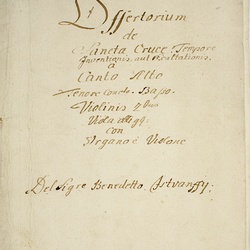 Offertorium
de
Sancta Cruce, Tempore
Inventionis, aut Exaltationis.
â
Canto Alto
Tenore Conc: Basso.
Violinis 2bus
Viola
con
Organo è Violone
Del Sigre Benedetto Istvanffÿ: